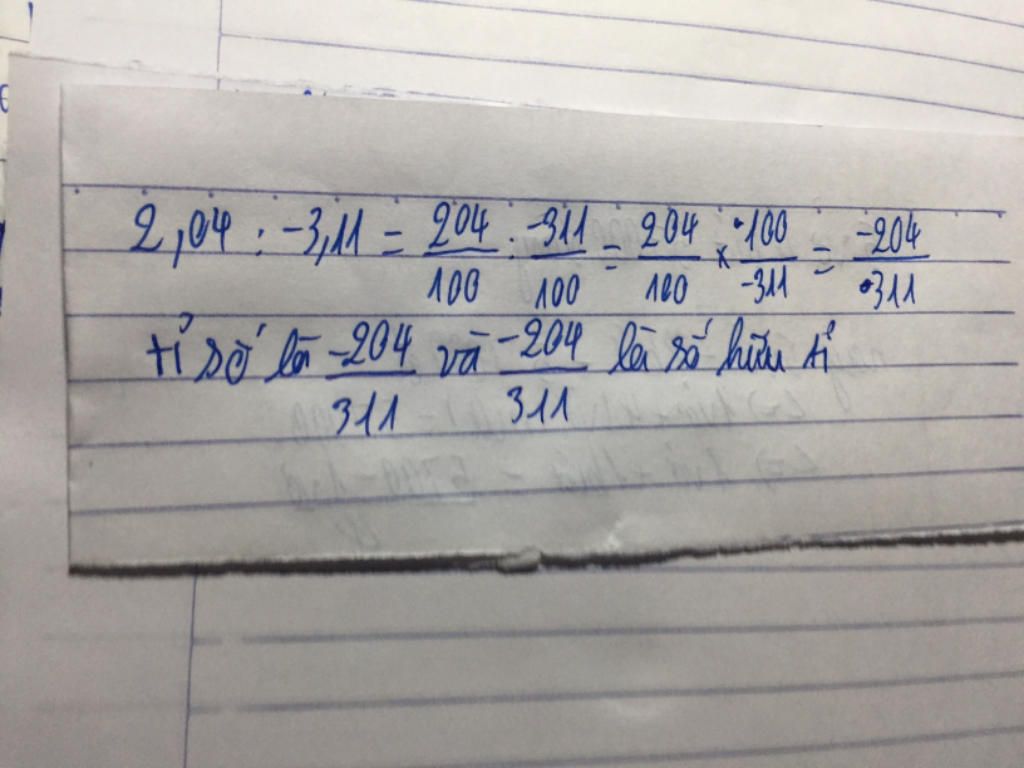 2,04 : -3,11 = 204/100 : -311/100 = 204/100 x 100/-311 = -204/311
tỉ số là -204/311 và -204/311 là số hữu tỉ